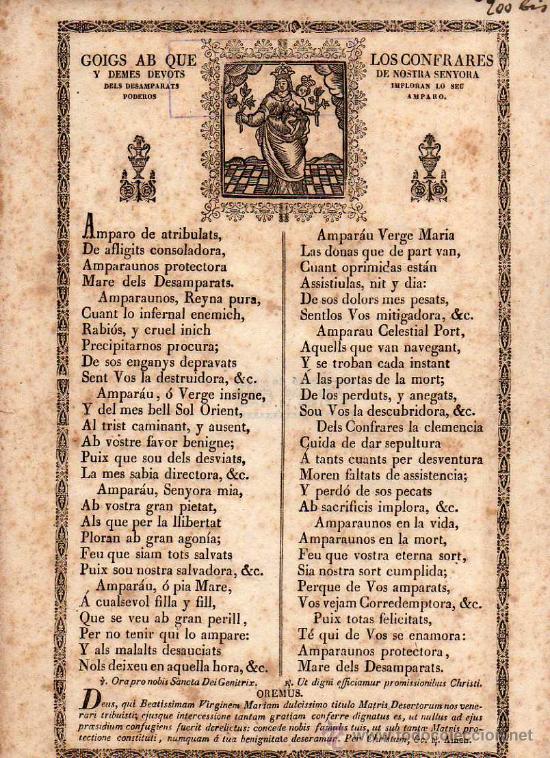 200 bis
GOIGS AB QUE LOS CONFRARES
Y DEMES DEVOTS DE NOSTRA SENYORA
DELS DESAMPARATS IMPLORAN LO SEU
PODEROS AMPARO.
Amparo de atribulats,
De afligits consoladora,
Amparaunos protectora
Mare dels Desamparats.
Amparaunos, Reyna pura,
Cuant lo infernal enemich,
Rabiós, y cruel inich
Precipitarnos procura;
De sos enganys depravats
Sent Vos la destruidora, &c.
Amparáu, ó Verge insigne,
Y del mes bell Sol Orient,
Al trist caminant, y ausent,
Ab vostre favor benigne;
Puix que sou dels desviats,
La mes sabia directora, &c.
Amparáu, Senyora mia,
Ab vostra gran pietat,
Als que per la llibertat
Ploran ab gran agonía;
Feu que siam tots salvats
Puix sou nostra salvadora, &c.
Amparáu, ó pia Mare,
Á cualsevol filla y fill,
Que se veu ab gran perill,
Per no tenir qui lo ampare:
Y als malalts desauciats
Nols deixeu en aquella hora, &c.
Amparáu Verge Maria
Las donas que de part van,
Cuant oprimidas están
Assistiulas, nit y dia:
De sos dolors mes pesats,
Sentlos Vos mitigadora, &c.
Amparau Celestial Port,
Aquells que van navegant,
Y se troban cada instant
Á las portas de la mort;
De los perduts, y anegats,
Sou Vos la descubridora, &c.
Dels Confrares la clemencia
Cuida de dar sepultura
Á tants cuants per desventura
Moren faltats de assistencia;
Y perdó de sos pecats
Ab sacrificis implora, &c.
Amparaunos en la vida,
Amparaunos en la mort,
Feu que vostra eterna sort,
Sia nostra sort cumplida;
Perque de Vos amparats,
Vos vejam Corredemptora, &c.
Puix totas felicitats,
Té qui de Vos se enamora:
Amparaunos protectora,
Mare dels Desamparats.
℣. Ora pro nobis Sancta Dei Genitrix. ℟. Ut digni efficiamur promissionibus Christi.
OREMUS.
Deus, qui Beatissimam Virginem Mariam dulcissimo titulo Matris Desertorum nos vene-
rari tribuisti; ejusque intercessione tantam gratiam conferre dignatus es, ut nullus ad ejus
præsidium confugiens fuerit derelictus: concede nobis famulis tuis, ut sub tantæ Matris pro-
tectione constituti, numquam á tua benignitate deseramur. Per Christum, &c. ℟. Amen.
todocoleccion.net